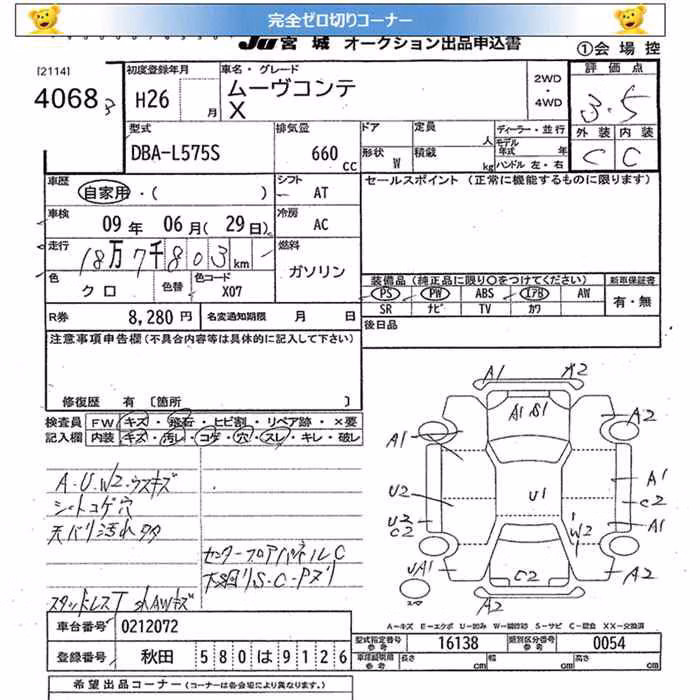 完全ゼロ切りコーナー
JU 宮城 オークション出品申込書
①会場控
[2114]
4068 3
初度登録年月
H26 月
車名・グレード
ムーヴコンテ
X
2WD
・
4WD
評価点
3.5
外装 内装
C C
型式
DBA-L575S
排気量
660 CC
ドア
定員 人
形状 W
積載 kg
ディーラー・並行
モデル年式 年
ハンドル 左・右
車歴
自家用・( )
シフト
AT
セールスポイント (正常に機能するものに限ります)
車検
09 年 06 月(29 日)
冷房
AC
走行
18万7千803km
燃料
ガソリン
色
クロ
色替
色コード
X07
装備品 (純正品に限り〇をつけてください)
新車保証書
PS PW ABS エアB AW
SR ナビ TV カワ
有・無
R券 8,280 円
名変通知期限 月 日
後日品
注意事項申告欄(不具合内容等は具体的に記入して下さい)
修復歴 有 〔箇所 〕
検査員記入欄
FW キズ・飛石・ヒビ割・リペア跡・×要
内装 キズ・汚れ・コゲ・穴・スレ・キレ・破レ
A・U・W2・ウスキズ
シートコゲ穴
天バリ汚れタタ
センターフロアパネルC
下廻りS・C・Pズリ
スタッドレスT 社外AWキズ
A1 A2
A1 S1
A1 A2
U2 U1 A1
C2
U2
C2 W2 A1
UA1 C2 A2
A2
A-キズ E-エクボ U-凹み W-補修跡 S-サビ C-腐食 XX-交換済
車台番号 0212072
型式指定番号 16138
類別区分番号 0054
登録番号 秋田 580 は 9126
長さ cm 幅 cm 高さ cm
希望出品コーナー (コーナーは各会場により異なります。)